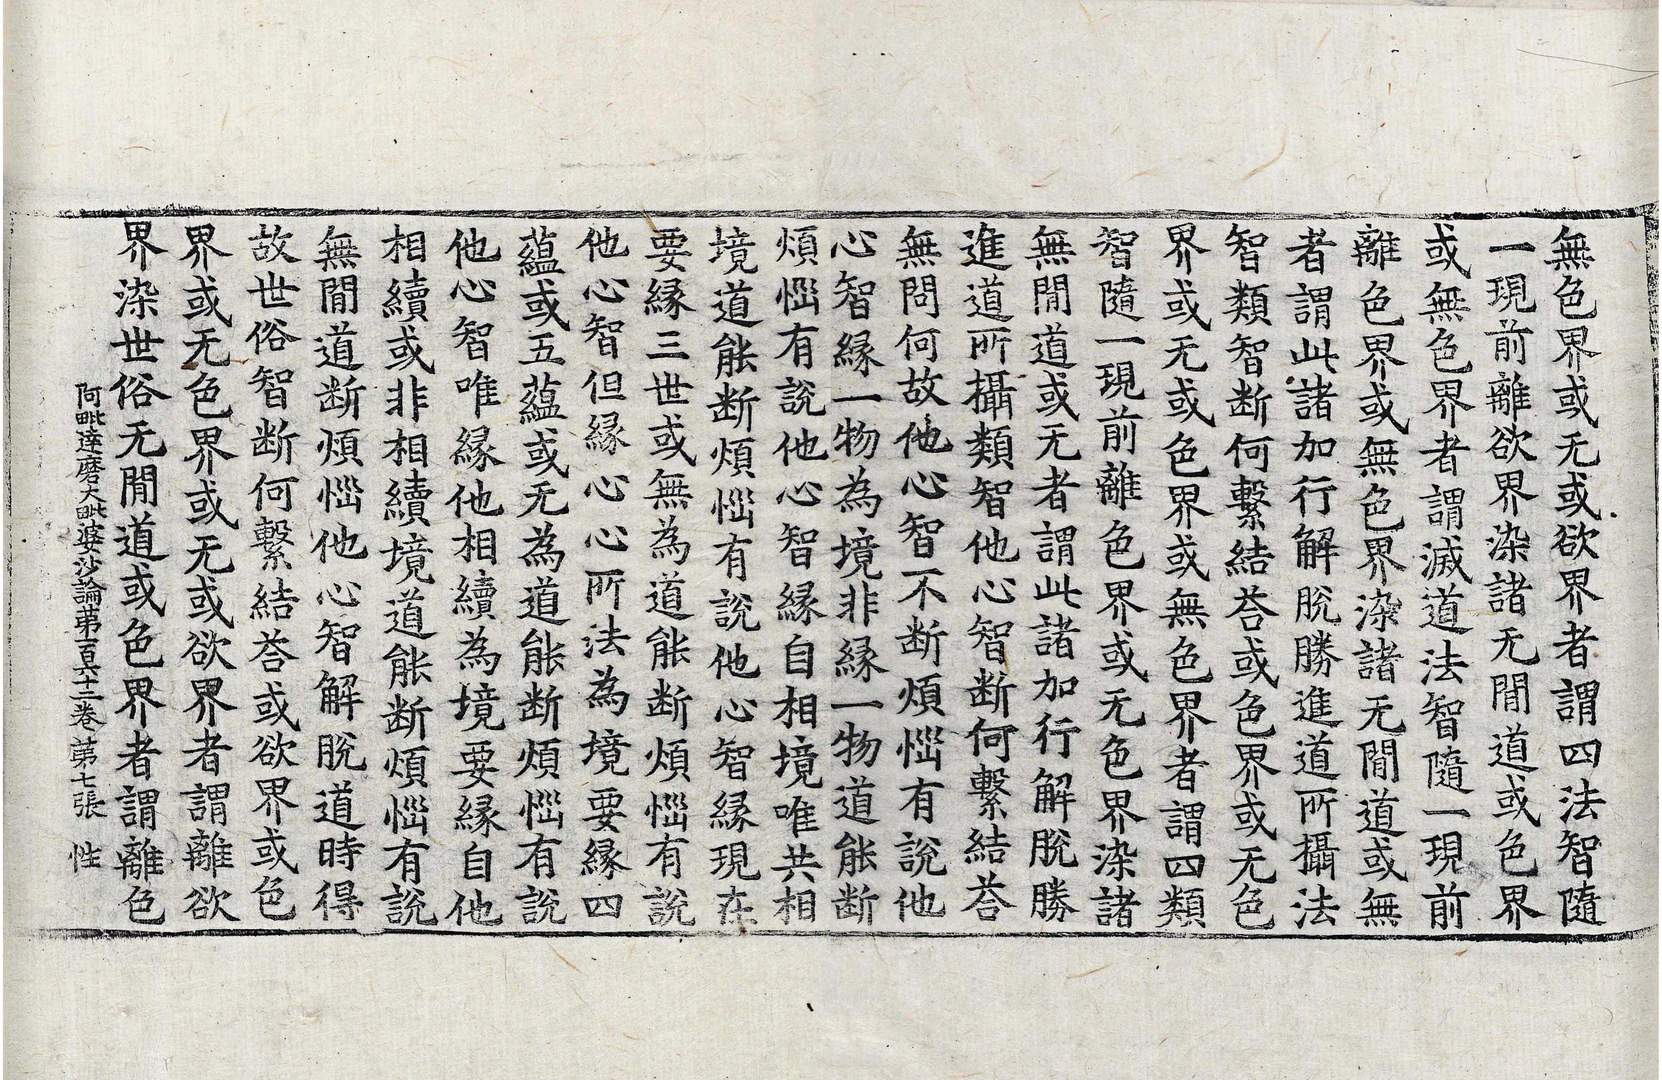 無色界或无或欲界者謂四法智隨
一現前離欲界染諸无閒道或色界
或無色界者謂滅道法智隨一現前
離色界或無色界染諸无閒道或無
者謂此諸加行解脫勝進道所攝法
智類智斷何繫結荅或色界或无色
界或无或色界或無色界者謂四類
智隨一現前離色界或无色界染諸
無閒道或无者謂此諸加行解脫勝
進道所攝類智他心智斷何繫結荅
無問何故他心智不断煩惱有說他
心智緣一物為境非緣一物道能断
煩惱有說他心智緣自相境唯共相
境道能断煩惱有說他心智緣現在
要緣三世或無為道能断煩惱有說
他心智但緣心心所法為境要緣四
蘊或五蘊或无為道能断煩惱有說
他心智唯緣他相續為境要緣自他
相續或非相續境道能断煩惱有說
無閒道断煩惱他心智解脫道時得
故世俗智断何繫結荅或欲界或色
界或无色界或无或欲界者謂離欲
界染世俗无閒道或色界者謂離色
阿毗達磨大毗婆沙論苐一百六十二卷 苐七張 性